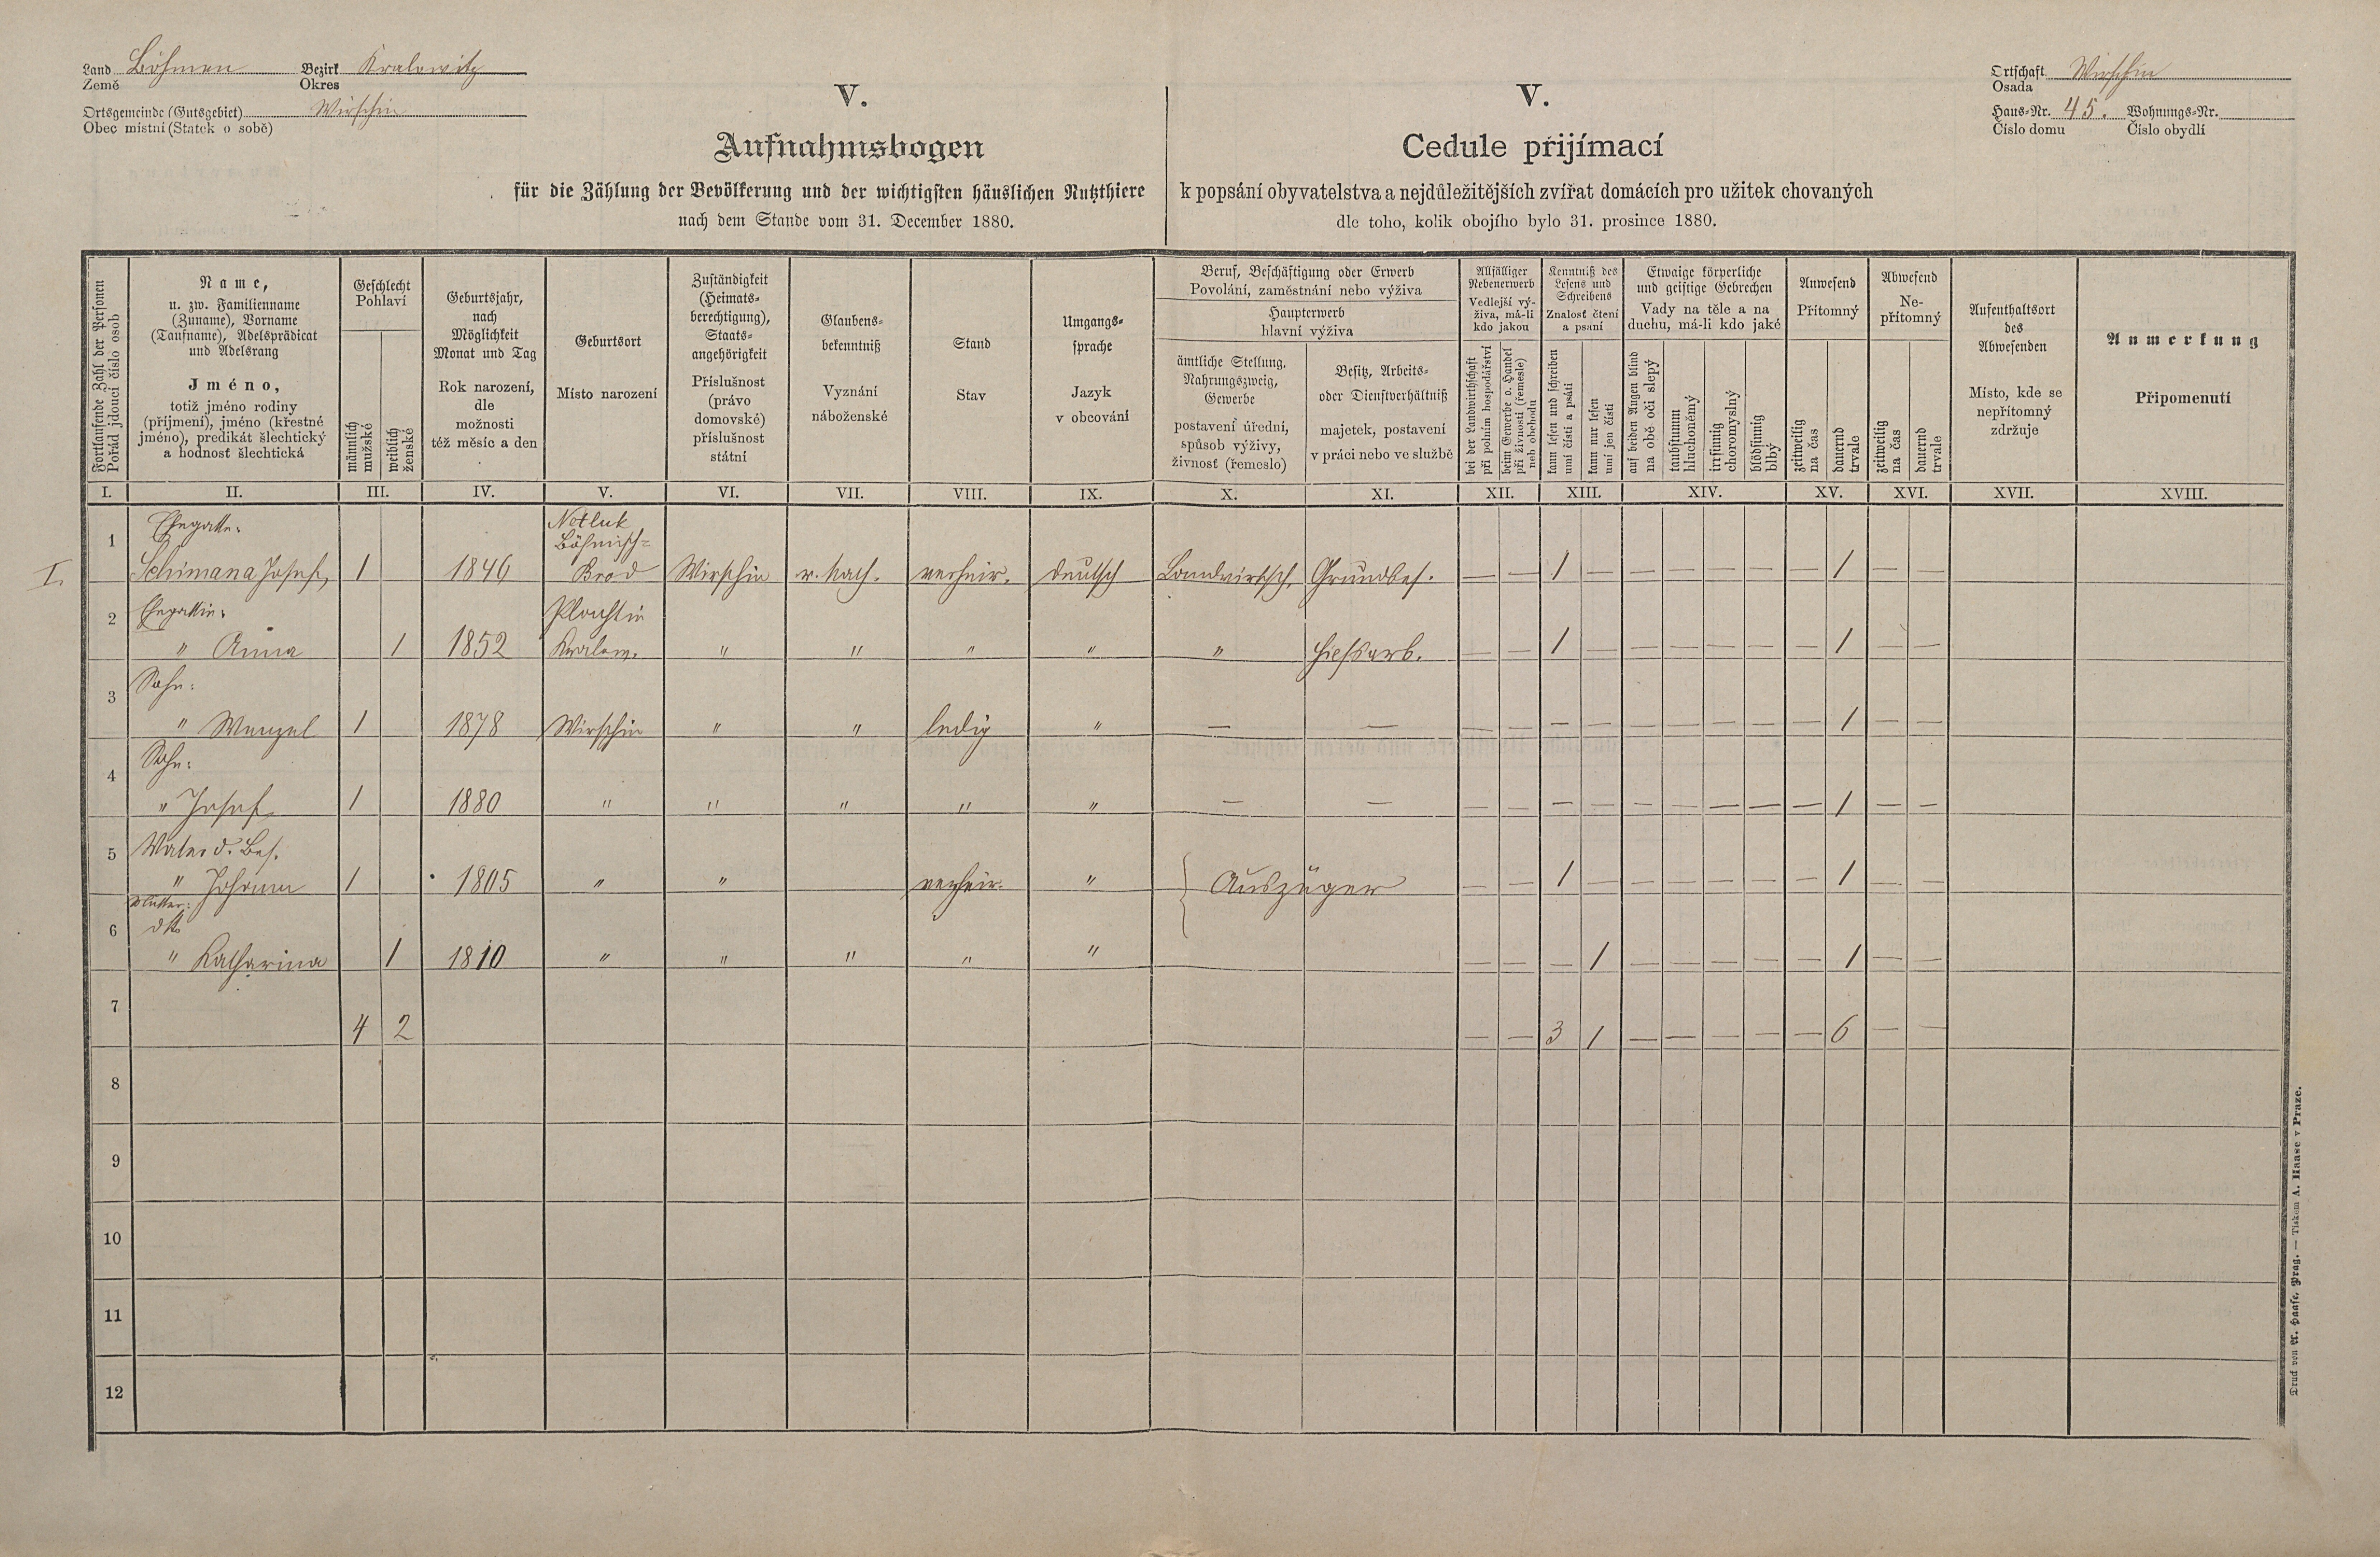 Land Böhmen Bezirk Kralowitz
Země Okres
Ortsgemeinde (Gutsgebiet) Wirschin
Obec místní (Statek o sobě)
V.
Aufnahmsbogen
für die Zählung der Bevölkerung und der wichtigsten häuslichen Nutzthiere
nach dem Stande vom 31. December 1880.
V.
Cedule přijímací
k popsání obyvatelstva a nejdůležitějších zvířat domácích pro užitek chovaných
dle toho, kolik obojího bylo 31. prosince 1880.
Ortschaft Wirschin
Osada
Haus-Nr. 45. Wohnungs-Nr.
Číslo domu Číslo obydlí
Fortlaufende Zahl der Personen
Pořád jdoucí číslo osob
Name,
u. zw. Familienname
(Zuname), Vorname
(Taufname), Adelsprädicat
und Adelsrang
Jméno,
totiž jméno rodiny
(příjmení), jméno (křestné
jméno), predikát šlechtický
a hodnost šlechtická
Geschlecht
Pohlaví
männlich
mužské
weiblich
ženské
Geburtsjahr,
nach
Möglichkeit
Monat und Tag
Rok narození,
dle
možnosti
též měsíc a den
Geburtsort
Místo narození
Zuständigkeit
(Heimats-
berechtigung),
Staats-
angehörigkeit
Příslušnost
(právo
domovské)
příslušnost
státní
Glaubens-
bekenntniß
Vyznání
náboženské
Stand
Stav
Umgangs-
sprache
Jazyk
v obcování
Beruf, Beschäftigung oder Erwerb
Povolání, zaměstnání nebo výživa
Haupterwerb
hlavní výživa
ämtliche Stellung,
Nahrungszweig,
Gewerbe
postavení úřední,
spůsob výživy,
živnost (řemeslo)
Besitz, Arbeits-
oder Dienstverhältniß
majetek, postavení
v práci nebo ve službě
Allfälliger
Nebenerwerb
Vedlejší vý-
živa, má-li
kdo jakou
bei der Landwirthschaft
při polním hospodářství
beim Gewerbe o. Handel
při živnosti (řemesle)
neb obchodu
Kenntniß des
Lesens und
Schreibens
Znalost čtení
a psaní
kann lesen und schreiben
umí čísti a psáti
kann nur lesen
umí jen čísti
Etwaige körperliche
und geistige Gebrechen
Vady na těle a na
duchu, má-li kdo jaké
auf beiden Augen blind
na obě oči slepý
taubstumm
hluchoněmý
irrsinnig
choromyslný
blödsinnig
blbý
Anwesend
Přítomný
zeitweilig
na čas
dauernd
trvale
Abwesend
Ne-
přítomný
zeitweilig
na čas
dauernd
trvale
Aufenthaltsort
des
Abwesenden
Místo, kde se
nepřítomný
zdržuje
Anmerkung
Připomenutí
I. II. III. IV. V. VI. VII. VIII. IX. X. XI. XII. XIII. XIV. XV. XVI. XVII. XVIII.
Ehegatte: Netluk
1 Böhmisch-
I. Schimana Josef, 1 1846 Brod Wirschin r. kath. verheir. deutsch Landwirtsch. Grundbes. — — 1 — — — — — — 1 — —
2 Ehegattin:
" Anna 1 1852 Kralow. " " " " " — — 1 — — — — — — 1 — —
3 Sohn:
" Wenzel 1 1878 Wirschin " " ledig " — — — — — — — — — — — 1 — —
4 Sohn:
" Josef, 1 1880 " " " " " — — — — — — — — — — — 1 — —
5 Vater d. Bes.
" Johann 1 1805 " " verheir. " Auszüger — — 1 — — — — — — 1 — —
Mutter:
6 dto
" Katharina 1 1810 " " " " " — — — 1 — — — — — 1 — —
7
4 2 — — 3 1 — — — — — 6 — —
8
9
10
11
12
Druck von A. Haase, Prag. — Tiskem A. Haase v Praze.